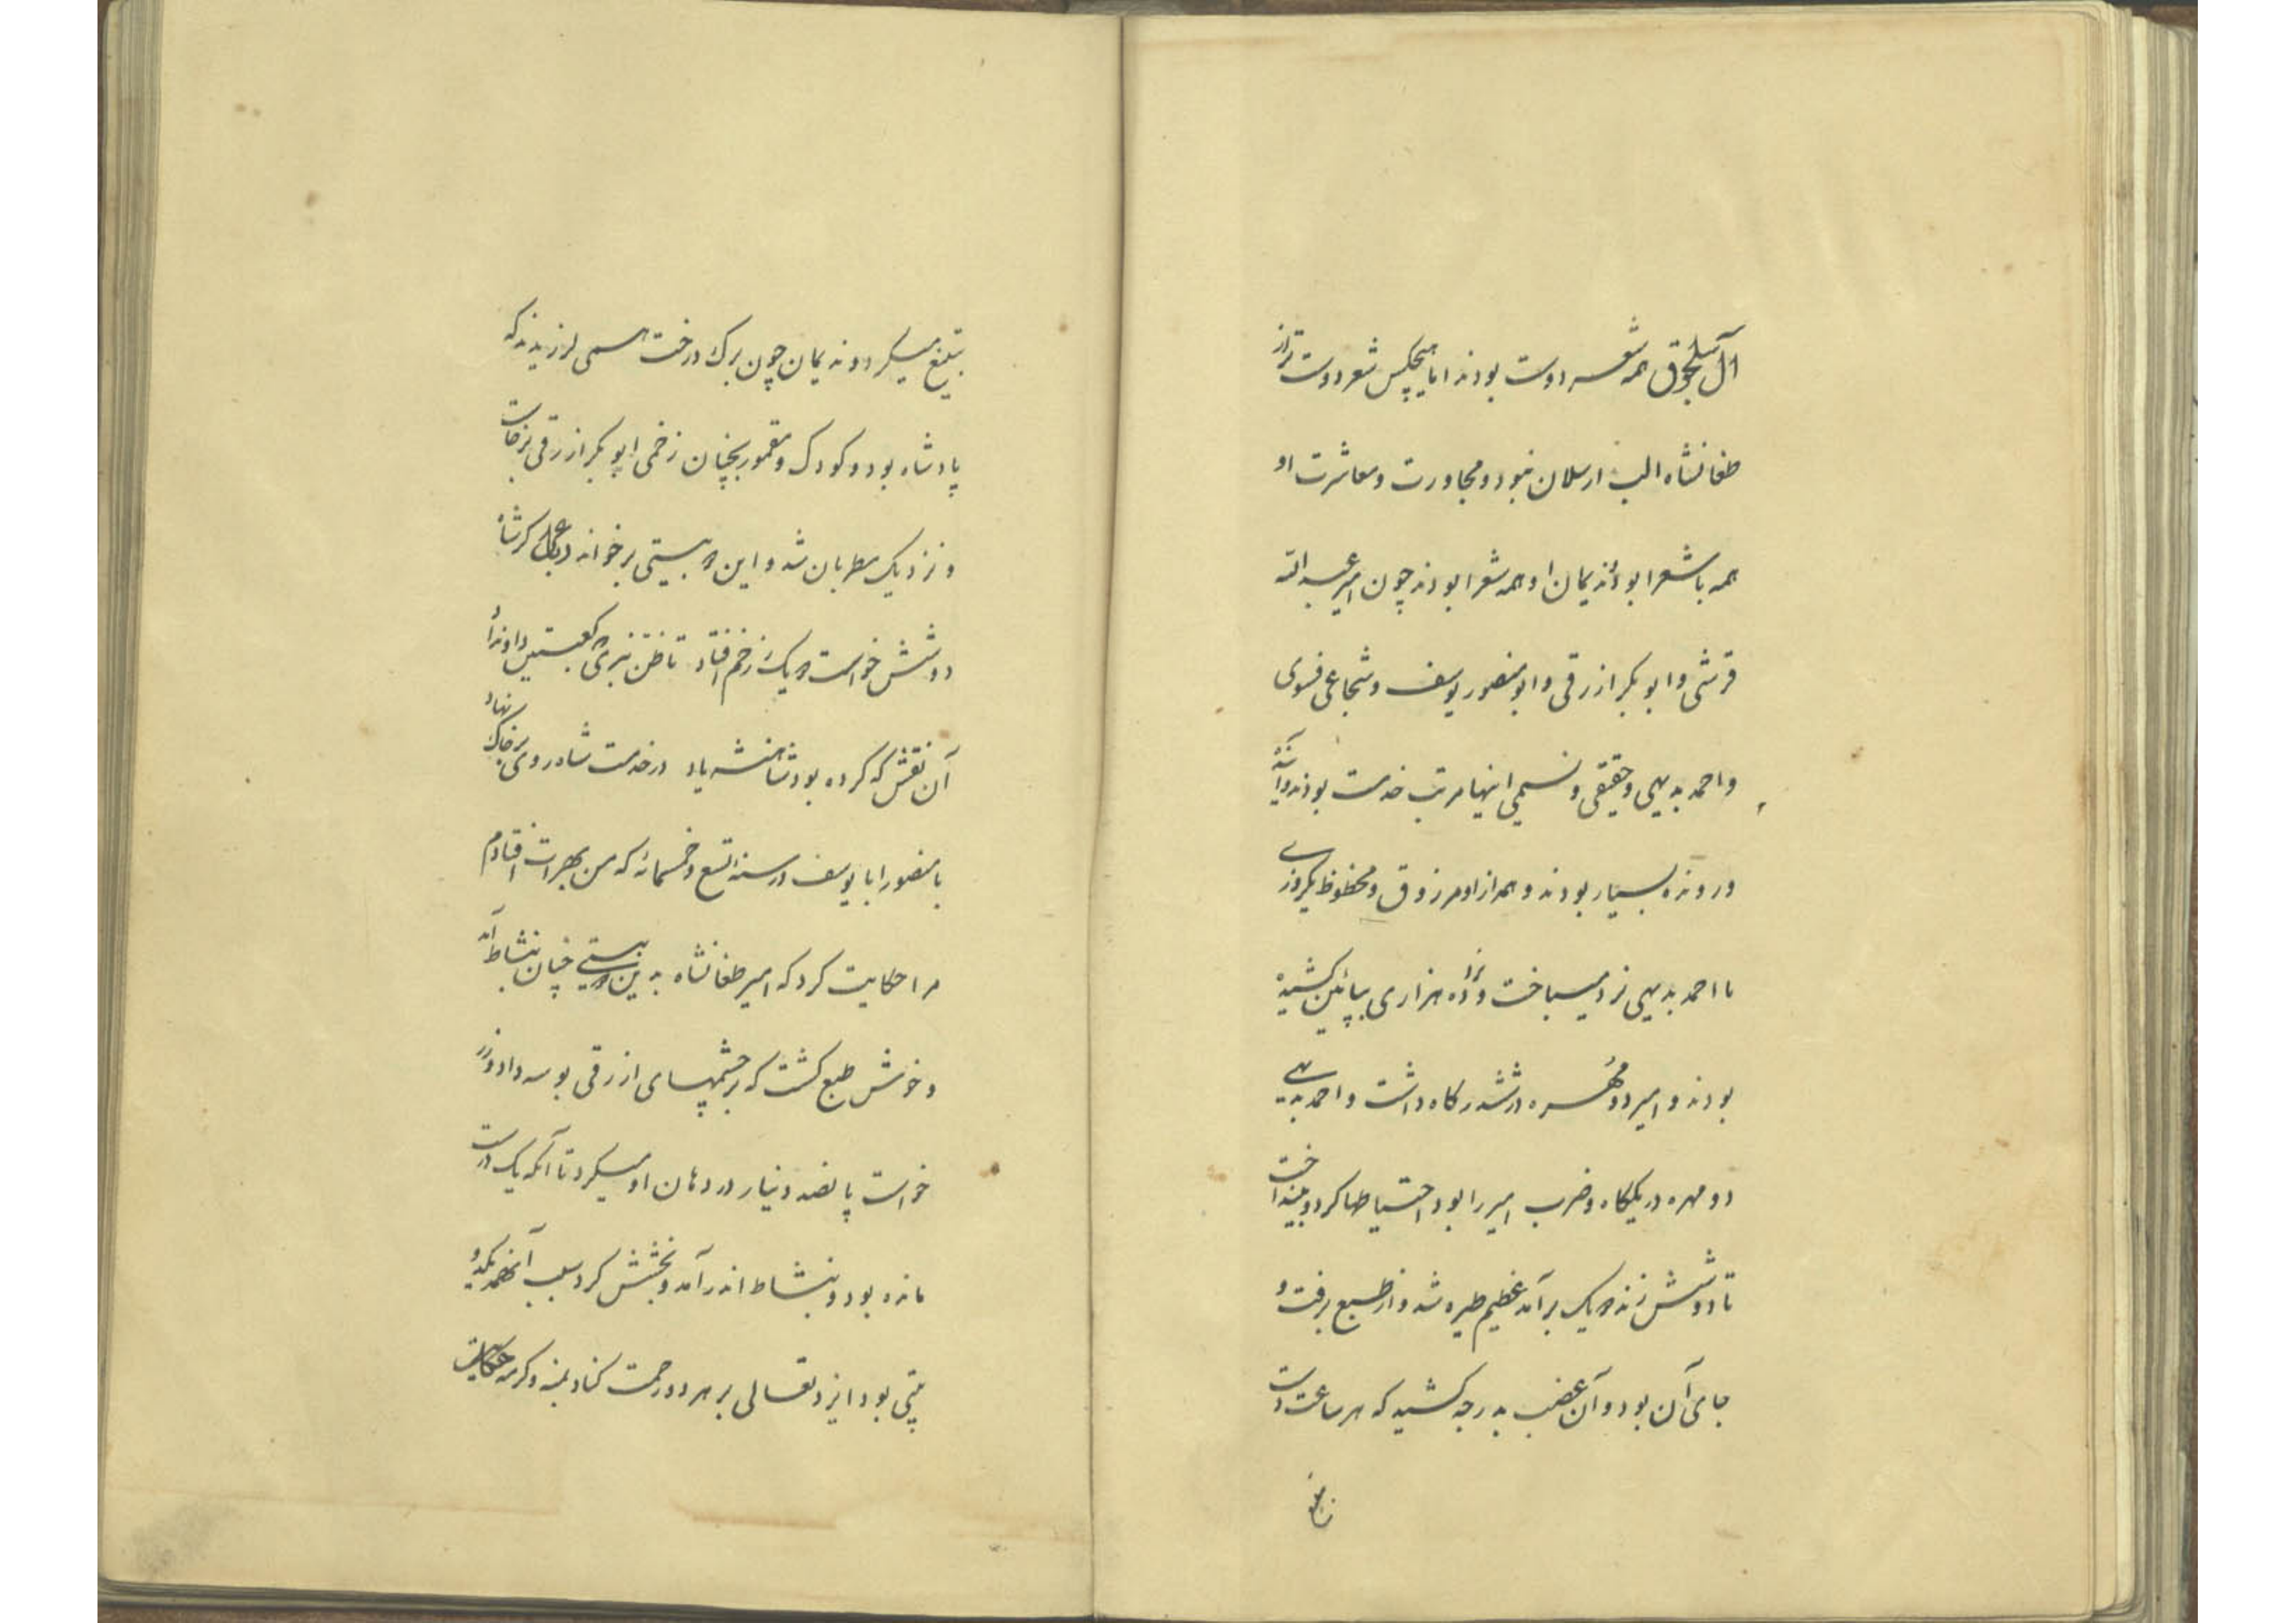 آل سلجوق همه شعر دوست بودند اما هیچکس شعر دوست تر از
طغانشاه الب ارسلان نبود و مجاورت و معاشرت او
همه با شعرا بود ندیمان او همه شعرا بودند چون امیر عبدالله
قرشی و ابو بکر ازرقی و ابو منصور یوسف و شجاعی فسوی
و احمد بدیهی و حقیقی و نسیمی اینها مرتب خدمت بودند و آینده
و رونده بسیار بودند و همه از او مرزوق و محظوظ یکروزے
با احمد بدیهی نرد میباخت و نرد ده هزاری بپائین کشیده
بودند و امیر دو مُهره در ششدر کاه داشت و احمد بدیهے
دو مهره در یککاه و ضرب امیر را بود احتیاطها کرد و بینداخت
تا دو شش زند دو یک برآمد عظیم طیره شد و از طبع برفت و
جای آن بود و آن غضب بدرجه کشید که هر ساعت دست
بتیغ میکرد و ندیمان چون برک درخت همی لرزیدند که
پادشاه بود و کودک و مقمور بچنان زخمی ابو بکر ازرقی برخاست
و نزدیک مطربان شد و این دو بیتی برخواند رباعی کر شاه
دو شش خواست دو یک زخم افتاد تا ظن نبری که کعبتین داد نداد
آن نقش که کرده بود شاهنشه یاد در خدمت شاه روی بر خاک نهاد
با منصور ابا یوسف در سنه تسع و خمسمائه که من بهرات افتادم
مرا حکایت کرد که امیر طغانشاه بدین دو بیتے چنان بنشاط آمد
و خوش طبع کشت که بر چشمهای ازرقی بوسه داد و زر
خواست پانصد دینار و در دهان او میکرد تا آنکه یک درست
مانده بود و بنشاط اندر آمد و بخشش کرد سبب آنهمه یکدو
بیتی بود ایزد تعالی بر هر دو رحمت کناد بمنه و کرمه حکایت